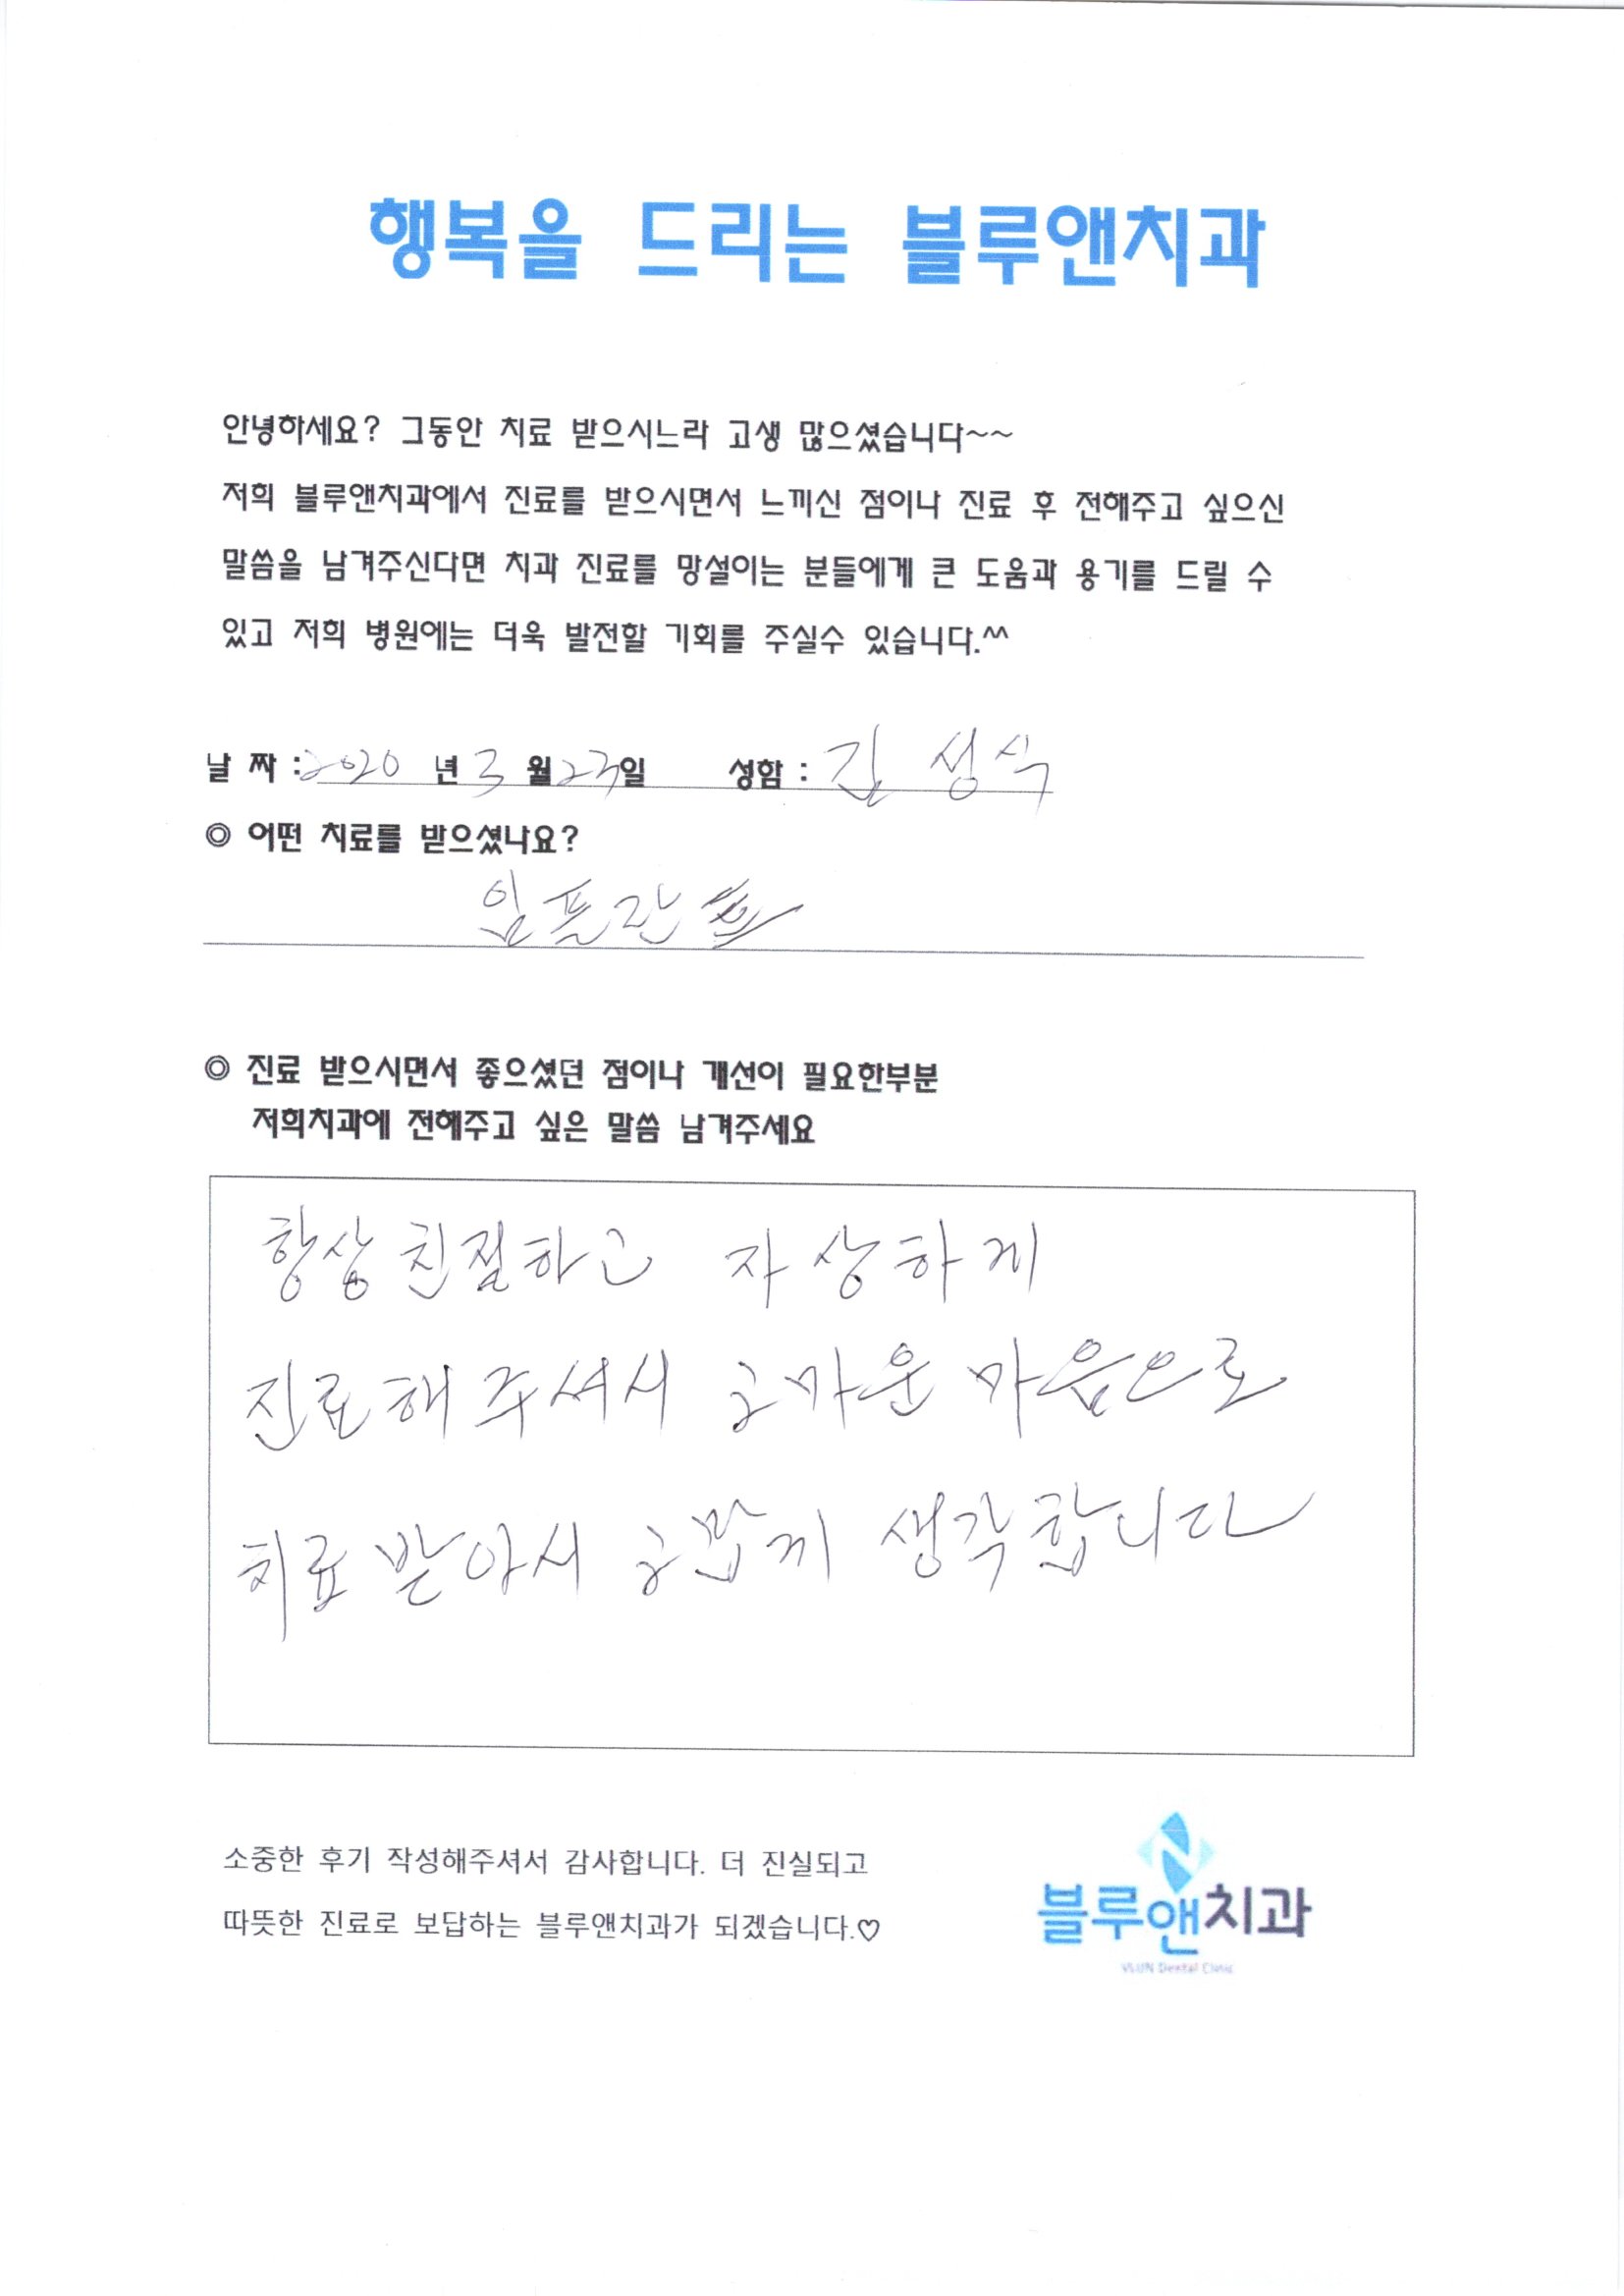 행복을 드리는 블루앤치과
안녕하세요? 그동안 치료 받으시느라 고생 많으셨습니다~~
저희 블루앤치과에서 진료를 받으시면서 느끼신 점이나 진료 후 전해주고 싶으신
말씀을 남겨주신다면 치과 진료를 망설이는 분들에게 큰 도움과 용기를 드릴 수
있고 저희 병원에는 더욱 발전할 기회를 주실수 있습니다.^^
날 짜 : 2020 년 3 월 23일 성함 : 김 성식
◎ 어떤 치료를 받으셨나요?
임플란트
◎ 진료 받으시면서 좋으셨던 점이나 개선이 필요한부분
저희치과에 전해주고 싶은 말씀 남겨주세요
항상 친절하고 자상하게
진료해 주셔서 고마운 마음으로
치료 받아서 고맙게 생각합니다
소중한 후기 작성해주셔서 감사합니다. 더 진실되고
따뜻한 진료로 보답하는 블루앤치과가 되겠습니다.♡
블루앤치과
VLUN Dental Clinic